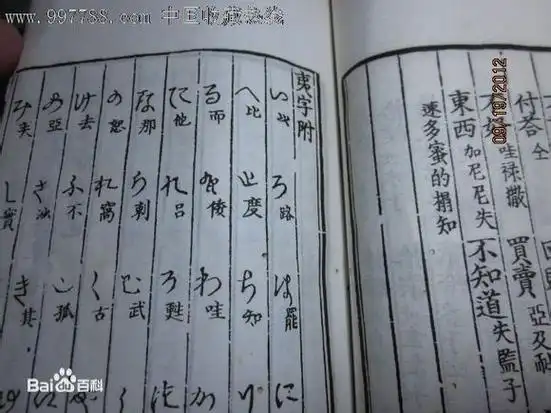 www.997788.com 中国收藏热线
09/19/2012
付答 仝 買賣 亞及
不好 哇祿撒 不知道 失藍子
東西 加尼尼失
速多蜜的揖知
夷字附
い ろ 路 は 罷 に
へ 比 と 度 ち 知 り
る 而 を 倭 わ 哇 か
た 他 れ 呂 そ 甦
な 那 ら 剌 む 武
の 怒 窩 く 古
け 去 ふ 不 こ 狐
あ 亞 さ き 其
み 失 し 實
Bai百科